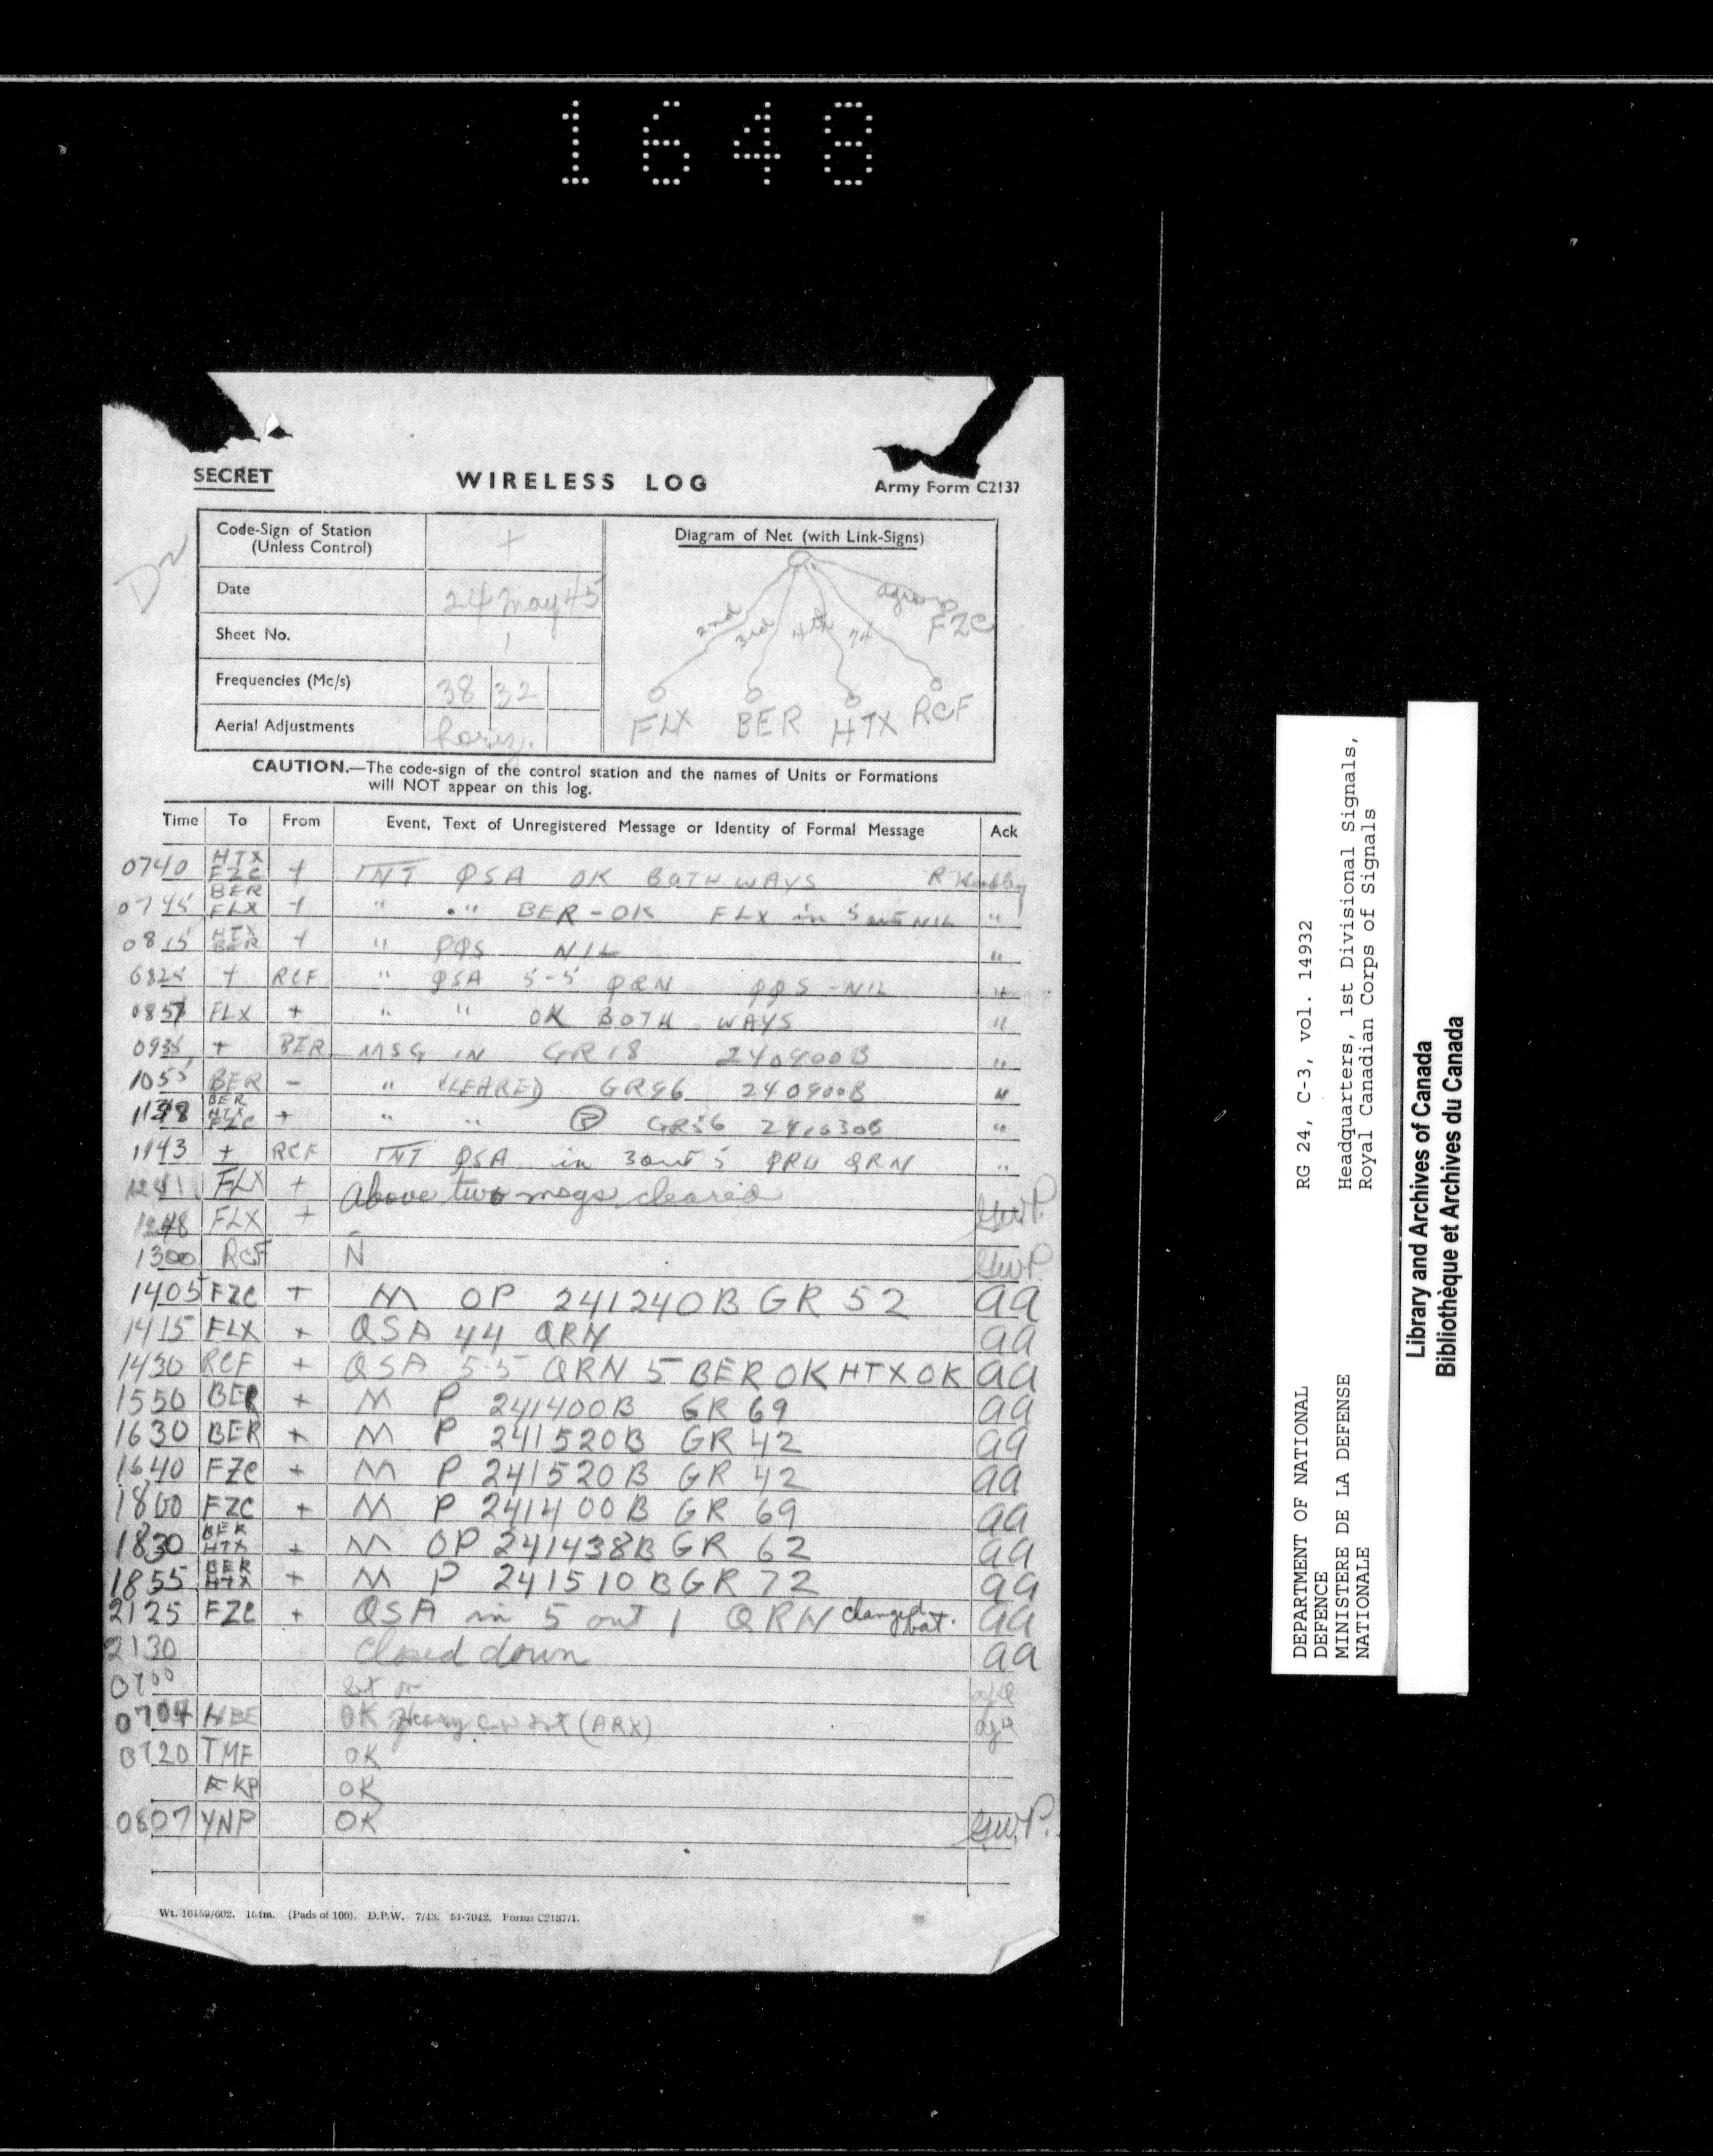 1648
SECRET WIRELESS LOG Army Form C2137
Code-Sign of Station
(Unless Control) +
Date 24 May 45
Sheet No. 1
Frequencies (Mc/s) 38 32
Aerial Adjustments
Diagram of Net (with Link-Signs)
2nd 3rd 4th 74
FZC
FLX BER HTX RCF
CAUTION.—The code-sign of the control station and the names of Units or Formations
will NOT appear on this log.
Time To From Event, Text of Unregistered Message or Identity of Formal Message Ack
0740 HTX FZC + INT QSA OK BOTH WAYS
0745 BER FLX + " " BER-OK FLX in 5 out NIL "
0815 HTX BER + " QQS NIL "
0825 + RCF " QSA 5-5 QRN QQS-NIL "
0857 FLX + " " OK BOTH WAYS "
0935 + BER MSG IN GR18 240900B "
1055 BER - " CLEARED GR96 240900B "
BER HTX FZC + " " P GR56 "
1143 + RCF INT QSA in 3 out 5 QRU QRN "
1241 FLX + Above two msgs cleared
1248 FLX + GWP.
1300 RCF N GWP.
1405 FZC + M OP 241240B GR 52 aa
1415 FLX + QSA 44 QRN aa
1430 RCF + QSA 5-5 QRN 5 BER OK HTX OK aa
1550 BER + M P 241400B GR 69 aa
1630 BER + M P 241520B GR 42 aa
1640 FZC + M P 241520B GR 42 aa
1800 FZC + M P 241400B GR 69 aa
1830 BER HTX + M OP 241438B GR 62 aa
1855 BER HTX + M P 241510B GR 72 aa
2125 FZC + QSA in 5 out 1 QRN changed bat. aa
2130 Closed down aa
0700 Set on
0704 OK (ARX)
0720 TMF OK
KP OK
0807 YNP OK GW.P.
Wt. 16159/602. 164m. (Pads of 100). D.P.W. 7/43. 51-7042. Forms C2137/1.
DEPARTMENT OF NATIONAL
DEFENCE
MINISTERE DE LA DEFENSE
NATIONALE
RG 24, C-3, vol. 14932
Headquarters, 1st Divisional Signals,
Royal Canadian Corps of Signals
Library and Archives of Canada
Bibliothèque et Archives du Canada